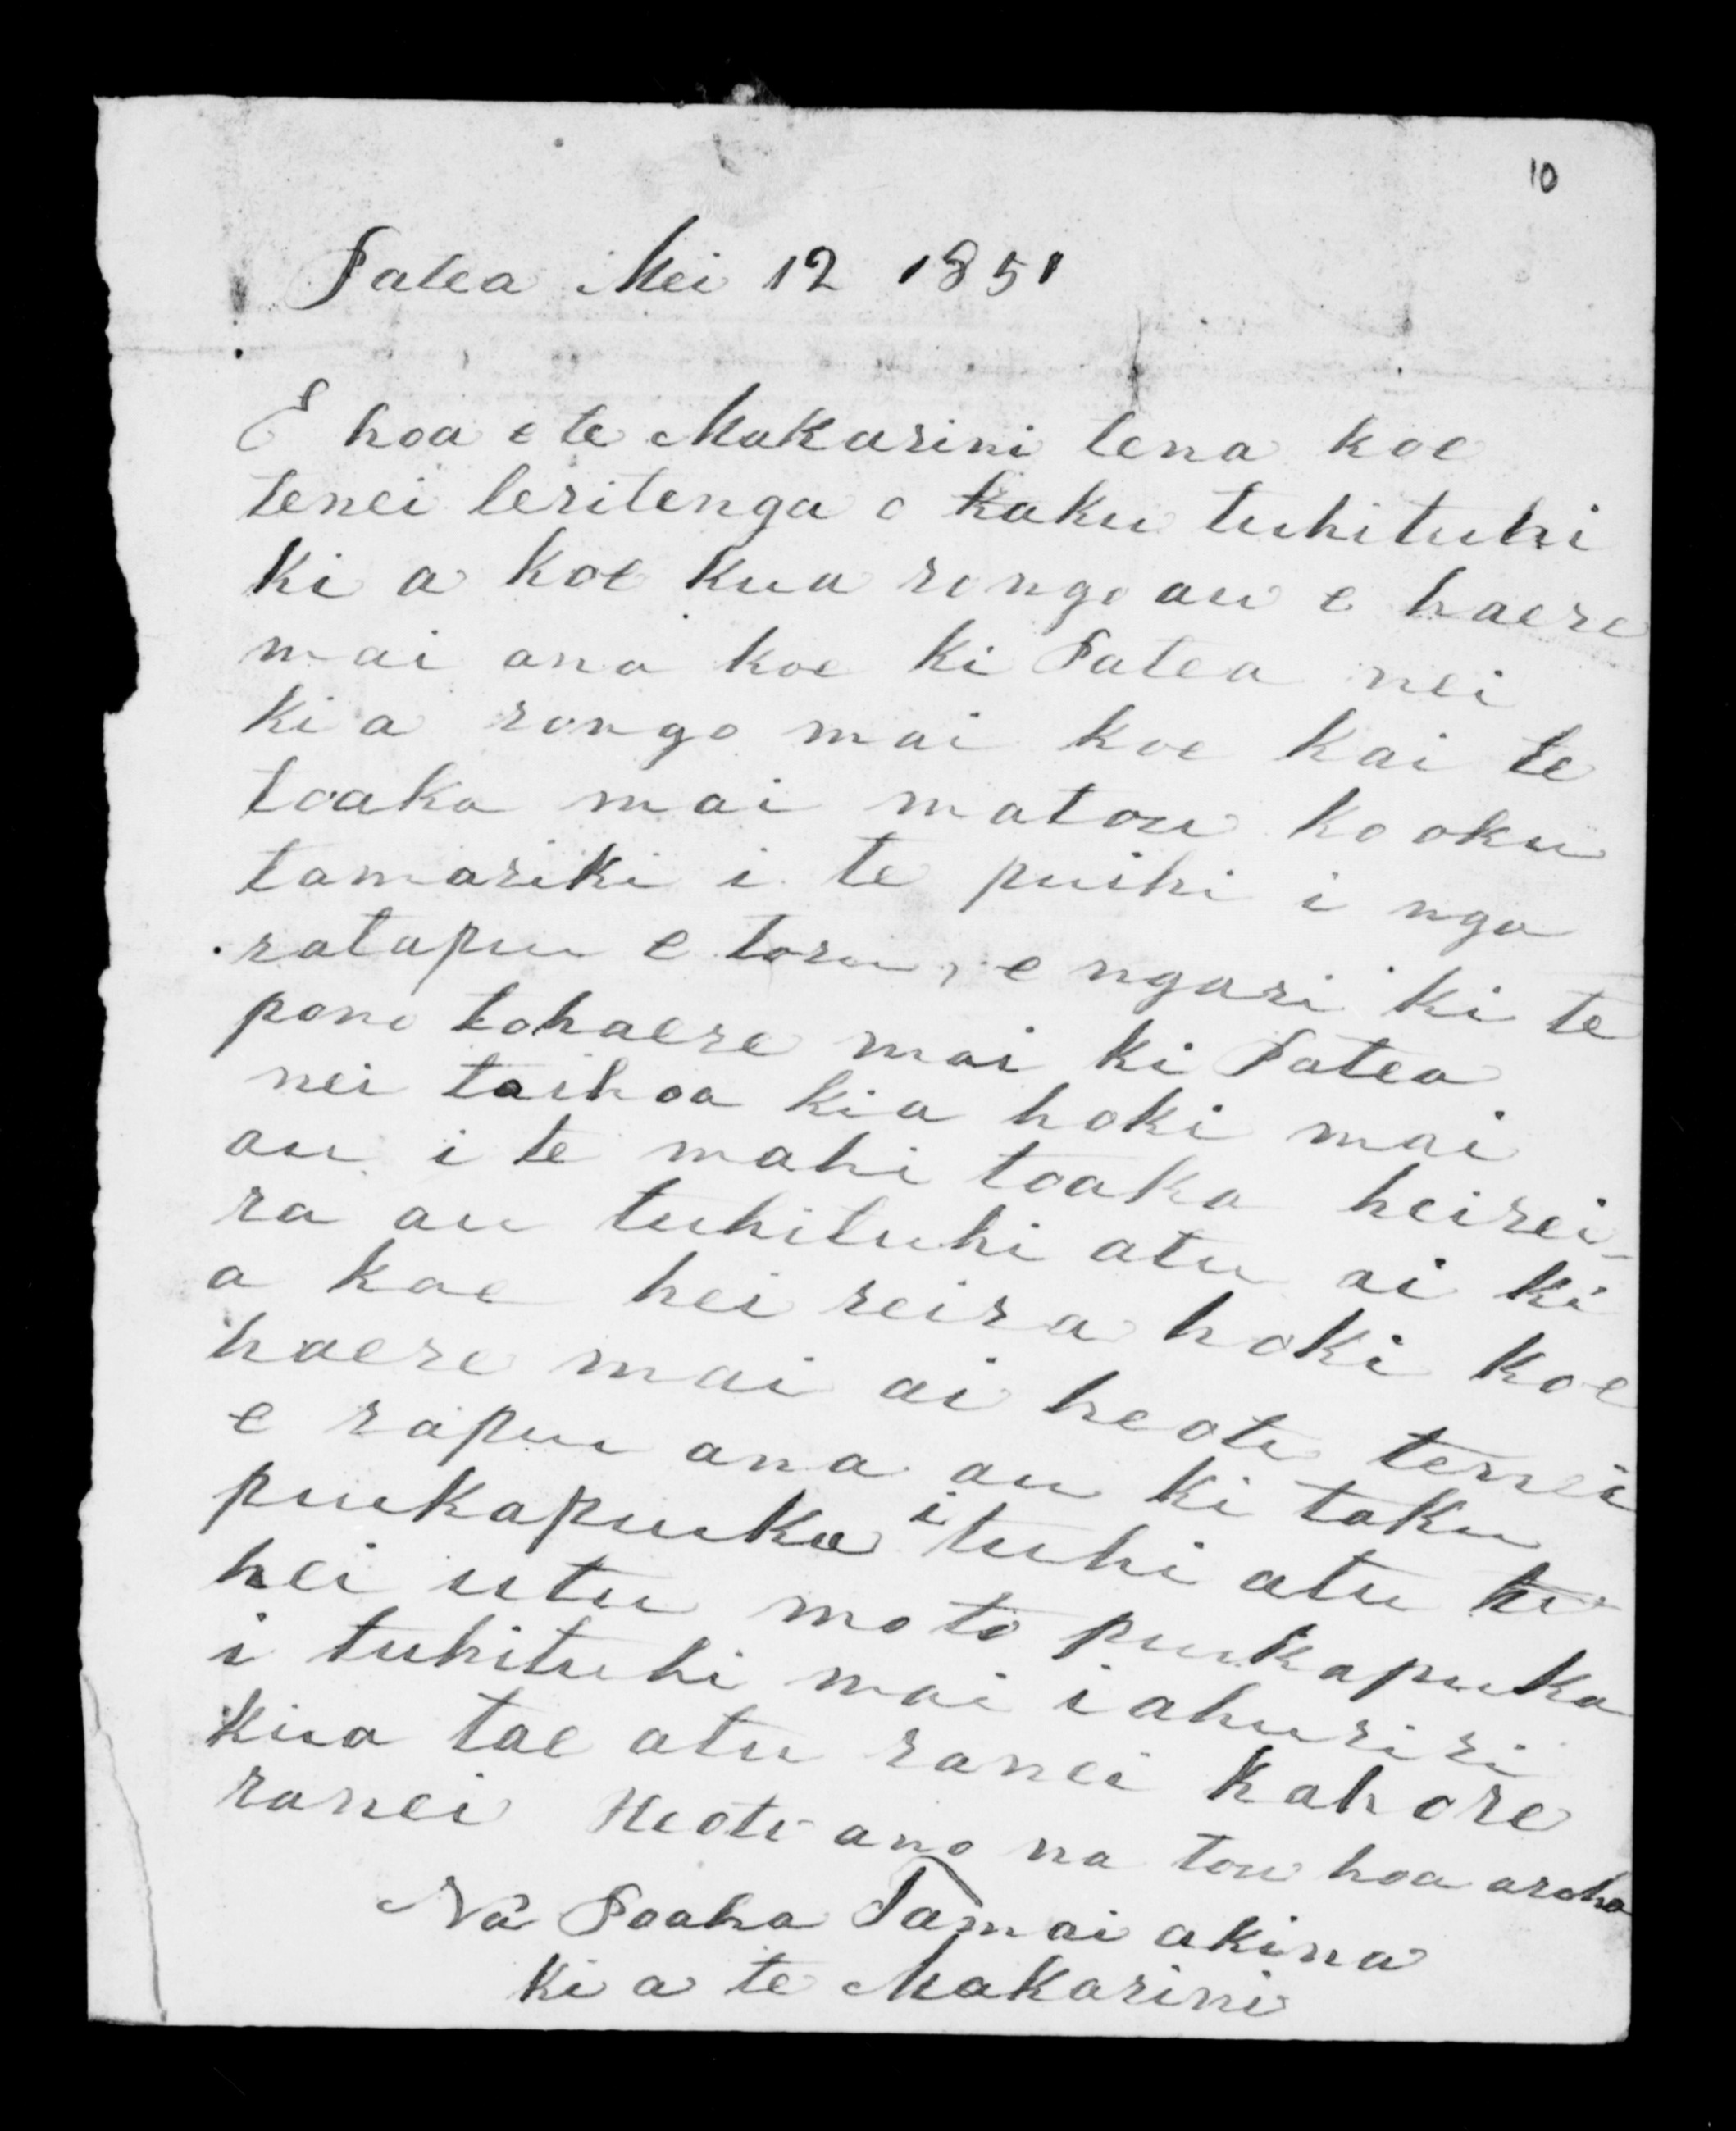 10
Patea Mei 12 1851
E hoa e te Makarini tena koe
tenei teritenga o taku tuhituhi
ki a koe kua rongo au e haere
mai ana koe ki Patea nei
kia rongo mai koe kai te
toaka mai matou ko oku
tamariki i te puihi i nga
ratapu e toru, e ngari ki te
pono tohaere mai ki Patea
nei taihoa kia hoki mai
au i te mahi toaka heirei-
ra au tuhituhi atu ai ki
a koe hei reira hoki koe
haere mai ai heoti tenei
e rapu ana au ki taku
pukapuka i tuhi atu
hei utu moto pukapuka
i tuhituhi mai i ahuriri
kua tae atu ranei kahore
ranei Heoti ano na tou hoa aroha
Na Paaha Tamai akina
ki a te Makarini